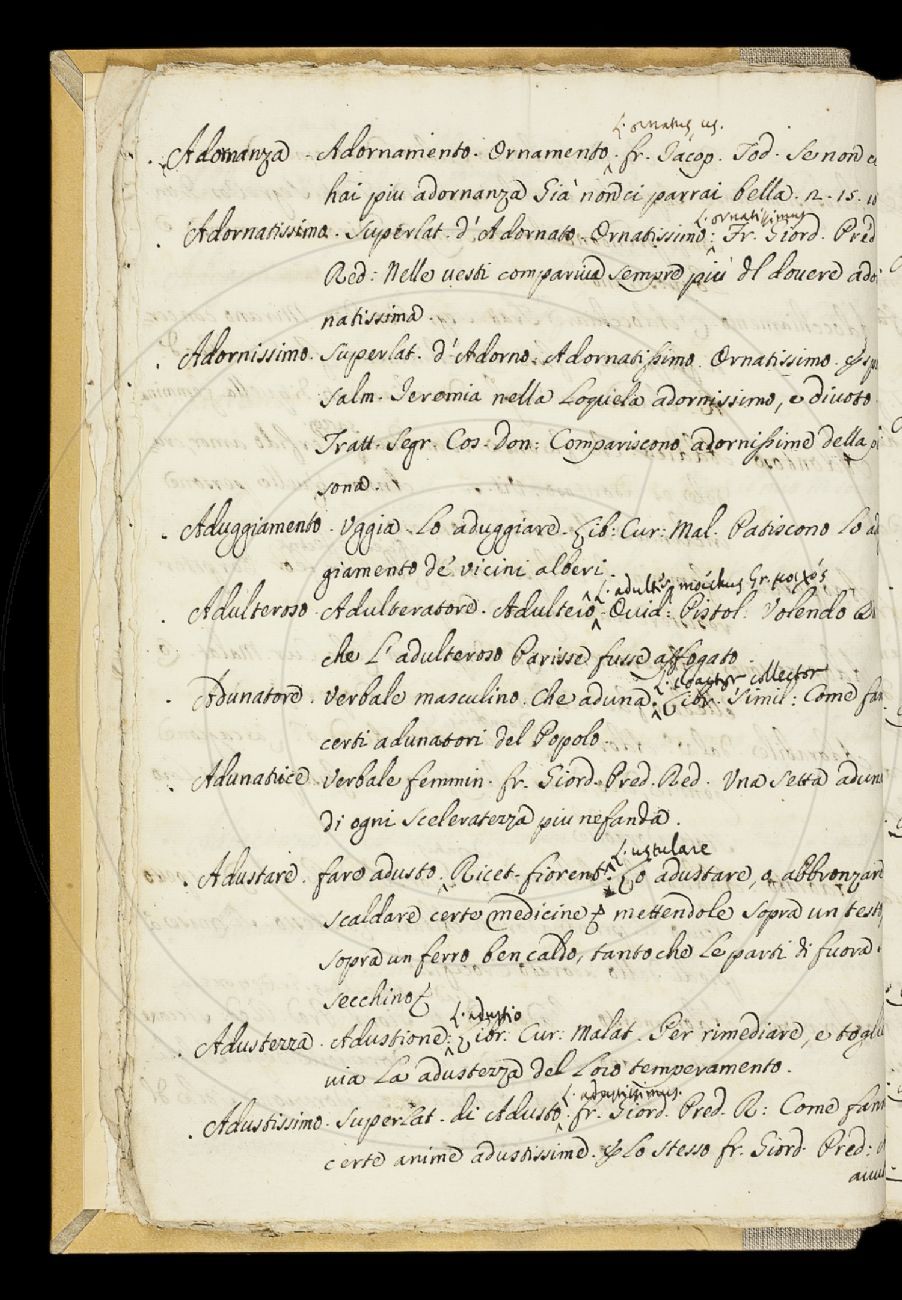 L. ornatus, us.
Adornanza. Adornamento. Ornamento. fr. Iacop. Tod. Se non ci
hai piu adornanza Già non ci parrai bella. 2. 15. 10
L. ornatissimus
Adornatissimo. Superlat. d'Adornato. Ornatissimo: Fr. Giord. Pred
Red: Nelle vesti compariva sempre più del dovere ador
natissima.
Adornissimo. Superlat. d'Adorno. Adornatissimo. Ornatissimo.
Salm. Ieremia nella Loquela adornissimo, e divoto
Tratt. Segr. Cos. Don: Compariscono adornissime della
sona.
Aduggiamento. Uggia. Lo aduggiare. Lib: Cur: Mal. Patiscono lo ad
giamento de' vicini alberi.
L. adulter, moechus Gr. μοιχός
Adulteroso. Adulteratore. Adultero. Ovid: Pistol. Volendo
che L'adulteroso Parisse fusse affogato.
L. coactor collector
Adunatore. Verbale masculino. Che aduna. Libr. Simil: Come fan
certi adunatori del Popolo.
Adunatrice. Verbale femmin. fr. Giord. Pred. Red. Una Setta aduna
di ogni sceleratezza piu nefanda.
L. ustulare
Adustare. fare adusto. Ricet. fiorent. Lo adustare, o abbronzare
scaldare certe medicine mettendole sopra un testo
sopra un ferro ben caldo, tanto che Le parti di fuora
secchino
L. adustio
Adustezza. Adustione: Libr. Cur: Malat. Per rimediare, e togli
via La adustezza del Loro temperamento.
L. adustissimus.
Adustissimo. Superlat. di Adusto. fr. Giord. Pred. R: Come fann
certe anime adustissime. Lo stesso fr. Giord. Pred: